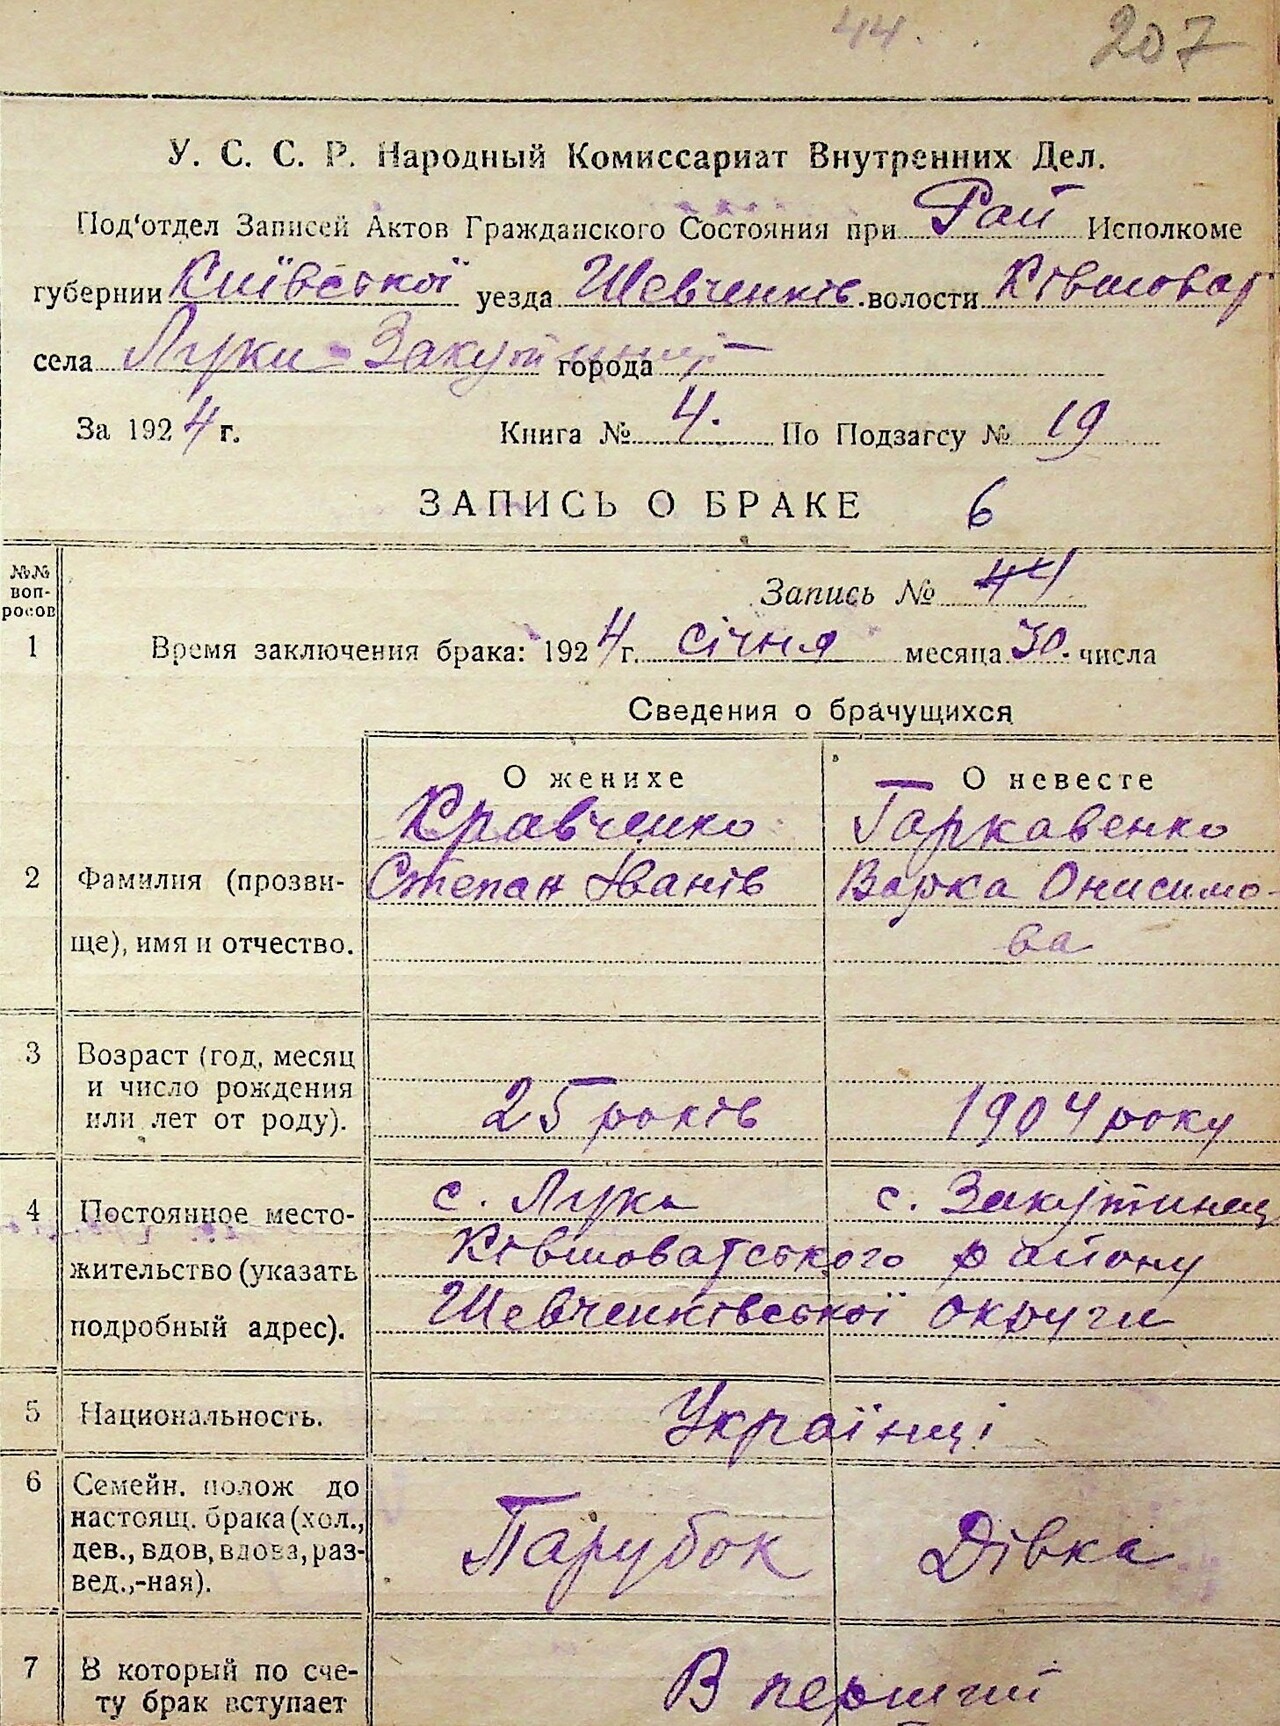 44.
207
У. С. С. Р. Народный Комиссариат Внутренних Дел.
Под'отдел Записей Актов Гражданского Состояния при Рай Исполкоме
губернии Київської уезда Шевченків. волости Ківшоват
села Луки-Закутинці города —
За 1924 г. Книга № 4. По Подзагсу № 19
ЗАПИСЬ О БРАКЕ 6
№№ вопросов
Запись № 44
1 Время заключения брака: 1924 г. січня месяца 30. числа
Сведения о брачущихся
О женихе О невесте
Кравченко Гаркавенко
2 Фамилия (прозви- Степан Іванів Варка Онисимо-
ще), имя и отчество. ва
3 Возраст (год, месяц
и число рождения
или лет от роду). 25 років 1904 року
4 Постоянное место- с. Лука с. Закутинец
жительство (указать Ківшоватського району
подробный адрес). Шевченківської округи
5 Национальность. Українці
6 Семейн. полож до
настоящ. брака (хол., Парубок Дівка
дев., вдов, вдова, раз-
вед.,-ная).
7 В который по сче- В перший
ту брак вступает